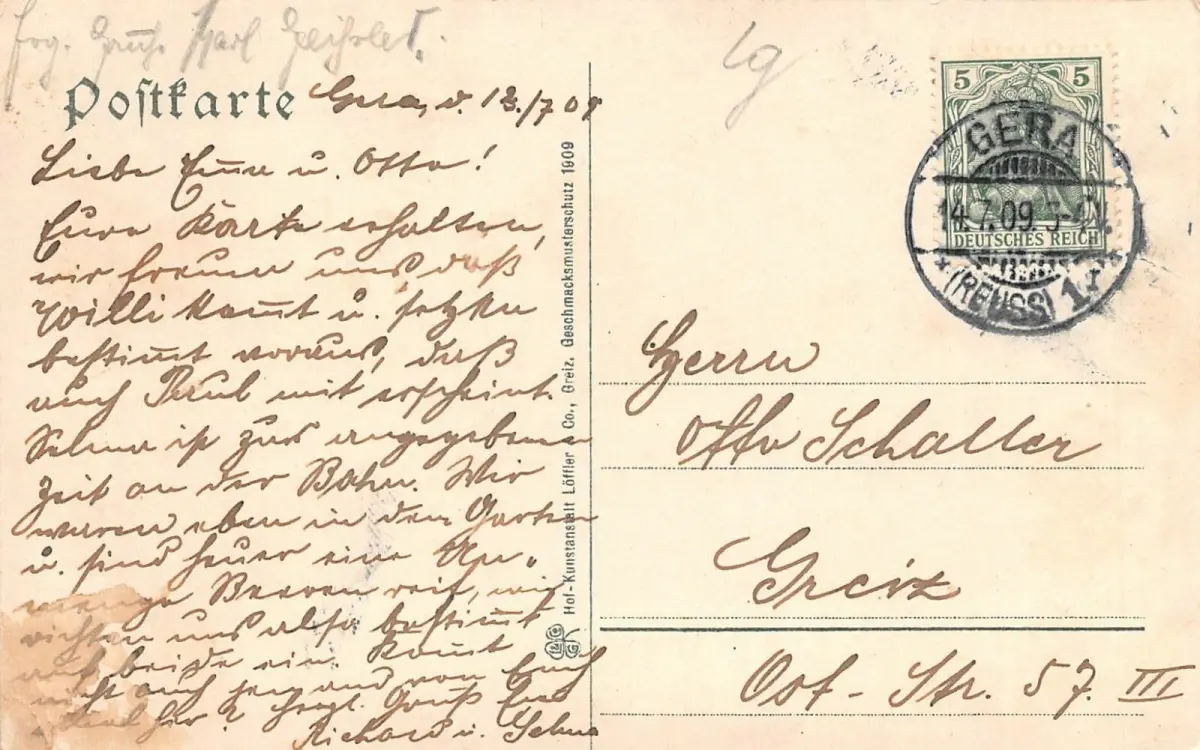 Postkarte
Gera, d. 13./7 09
Liebe Emma u. Otto!
Eure Karte erhalten,
wir freuen uns, daß
Willi kom̄t u. setzen
bestim̄t voraus, daß
auch Paul mit erscheint.
Selma ist zur angegebenen
Zeit an der Bahn. Wir
waren eben in dem Garten
u. sind heuer eine Un-
menge Beeren reif, wir
richten uns also bestim̄t
auf beide ein. Kom̄t
nicht auch jemand von Euch
mal her? Herzl. Gruß
Richard u. Selma
Hof-Kunstanstalt Löffler & Co., Greiz. Geschmacksmusterschutz 1909
5 5
DEUTSCHES REICH
GERA
14.7.09.
* (REUSS) 1
Herrn
Otto Schaller
Greiz
Ost-Str. 57. III